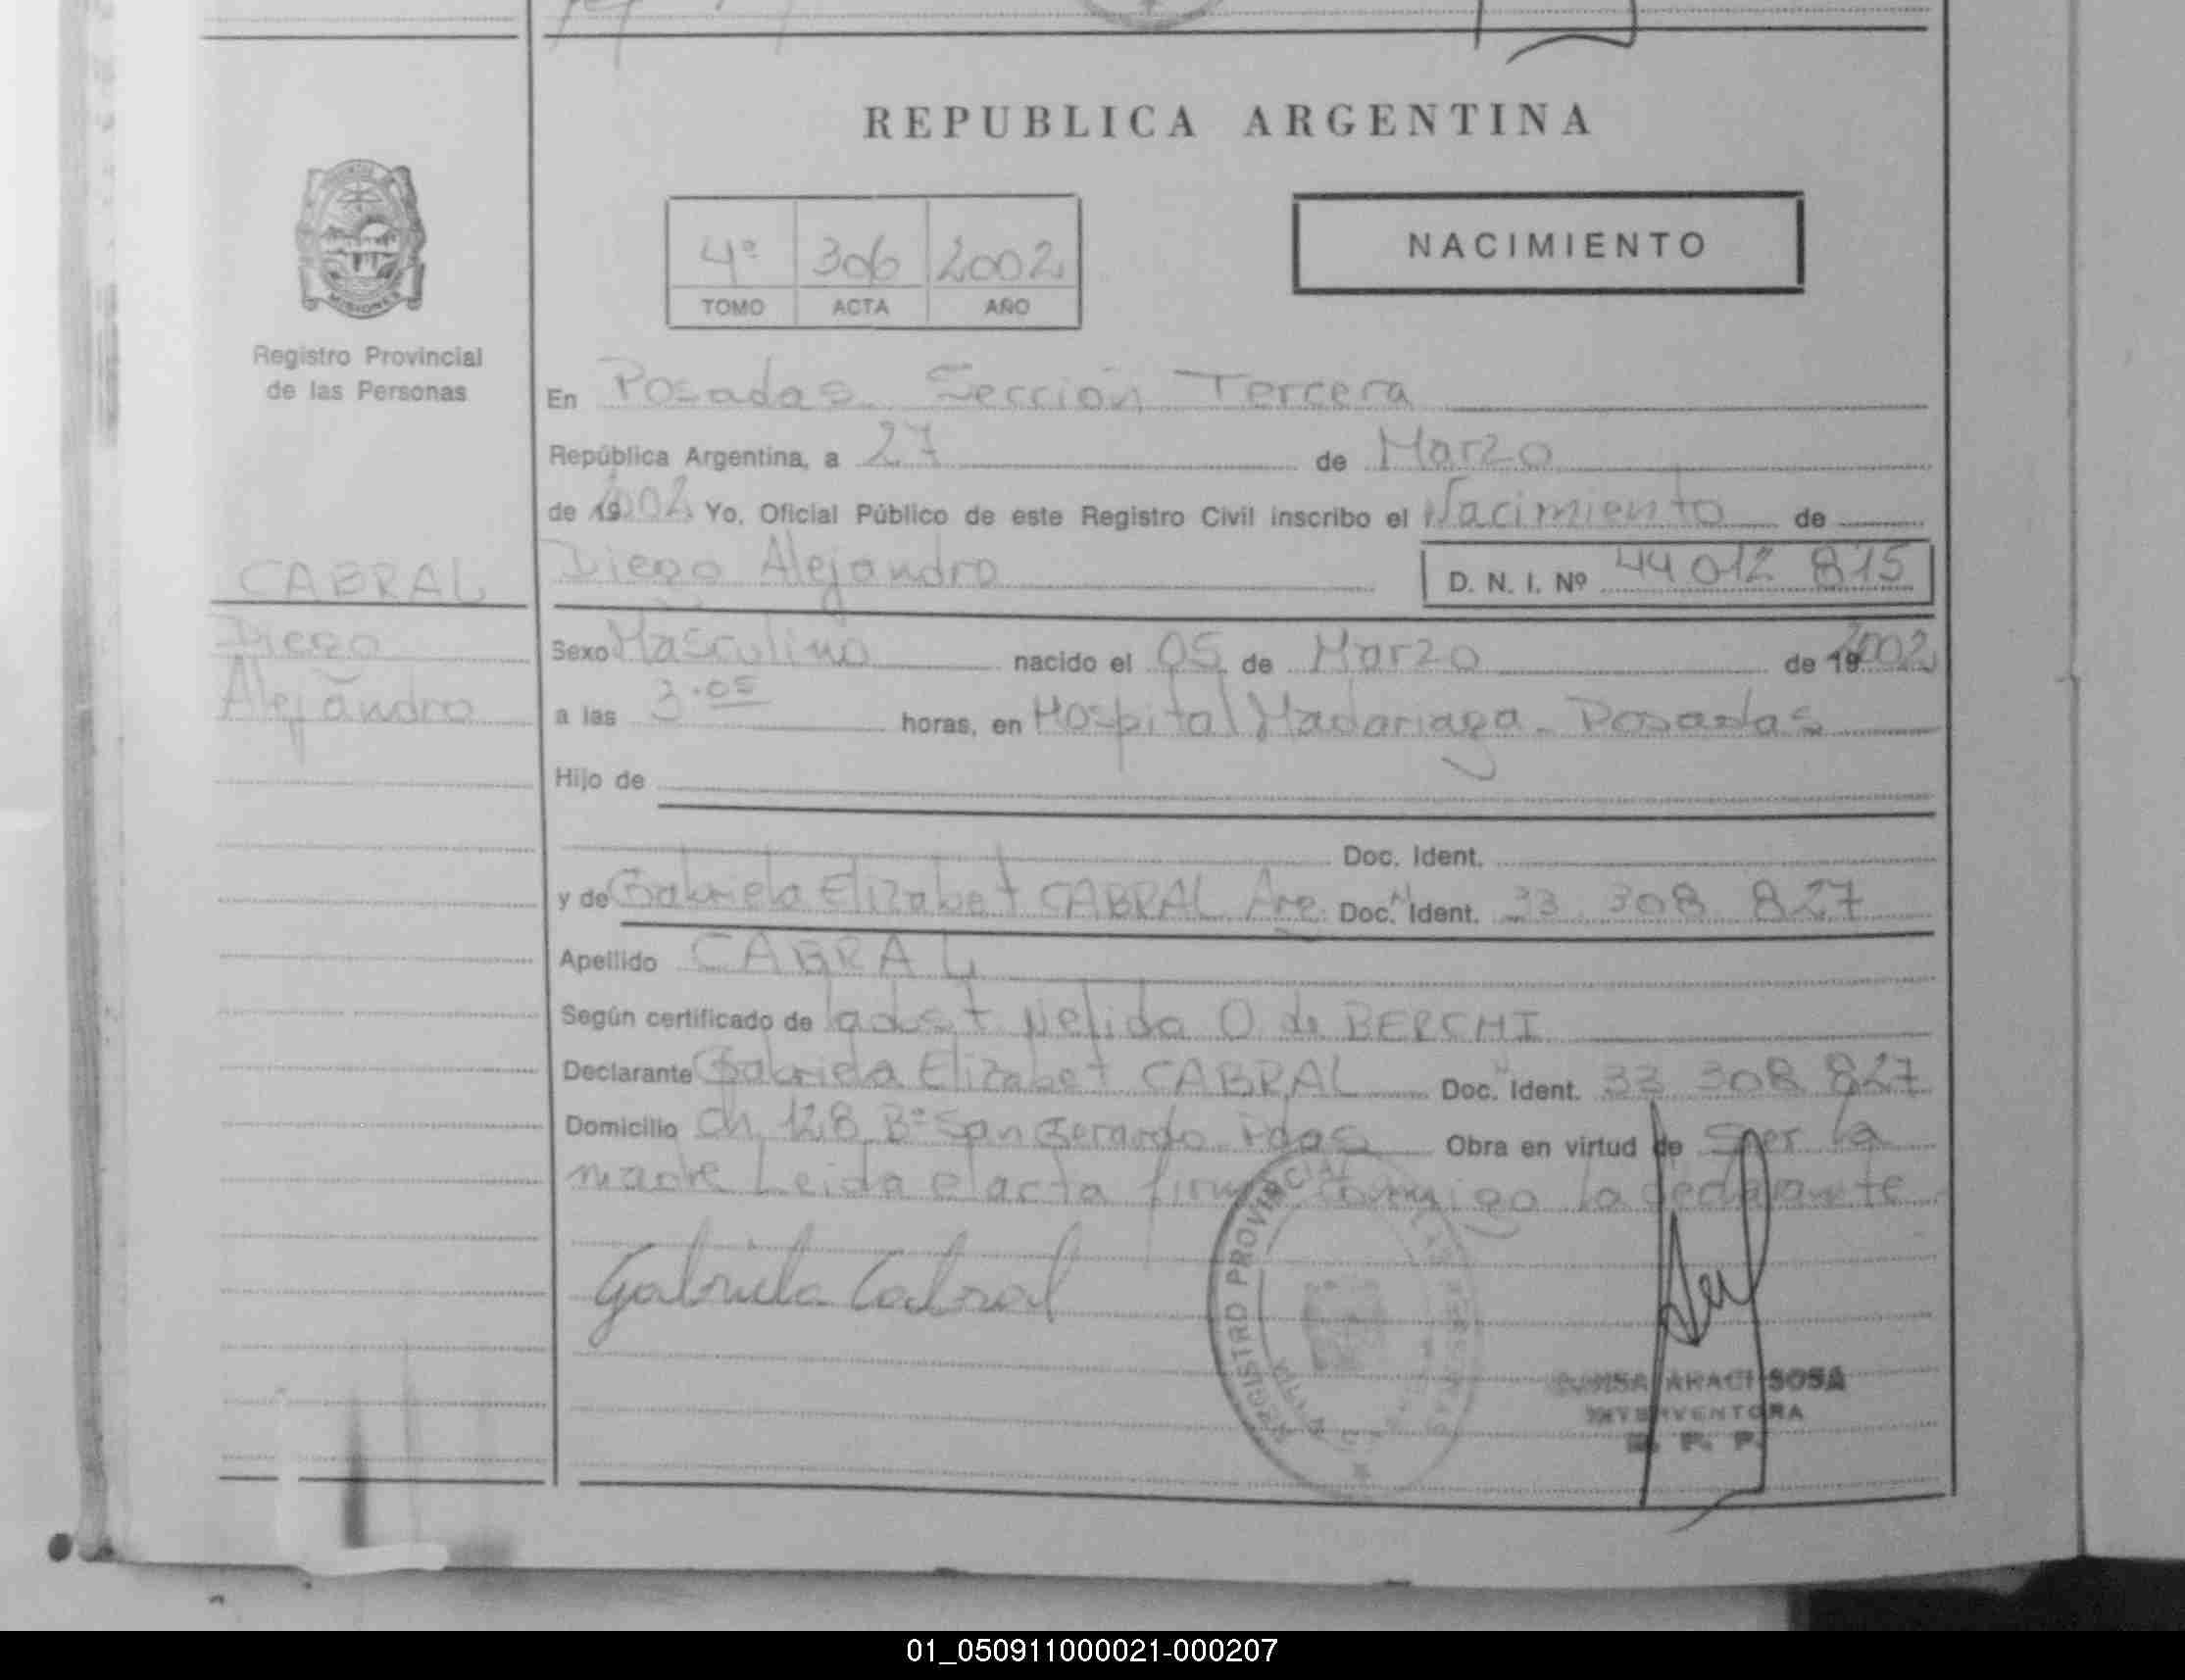 REPUBLICA ARGENTINA
NACIMIENTO
4º 306 2002
TOMO ACTA AÑO
MISIONES
Registro Provincial
de las Personas
En Posadas Sección Tercera
República Argentina, a 27 de Marzo
de 2002 Yo, Oficial Público de este Registro Civil inscribo el Nacimiento de
CABRAL
Diego Alejandro D. N. I. Nº 44 012 815
Diego
Alejandro
Sexo Masculino nacido el 05 de Marzo de 2002
a las 3.05 horas, en Hospital Madariaga - Posadas
Hijo de
Doc. Ident.
y de Gabriela Elizabet CABRAL Arg. Doc. Ident. 33 308 827
Apellido CABRAL
Según certificado de la obst Nelida O. de BERCHI
Declarante Gabriela Elizabet CABRAL Doc. Ident. 33 308 827
Domicilio Ch 128 Bº San Gerardo Pdas Obra en virtud de ser la
madre Leida el acta firma conmigo la declarante
Gabriela Cabral
REGISTRO PROVINCIAL
SOSA
INTERVENTORA
01_050911000021-000207